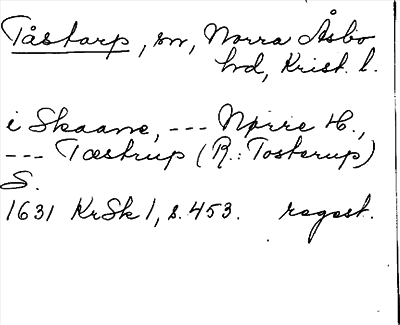 Tåstarp, sn, Norra Åsbo
hd, Krist. l.
i Skaane, --- Nørre H.,
--- Tæstrup (R.: Tosterup)
S.
1631 KrSk 1, s. 453. regest.